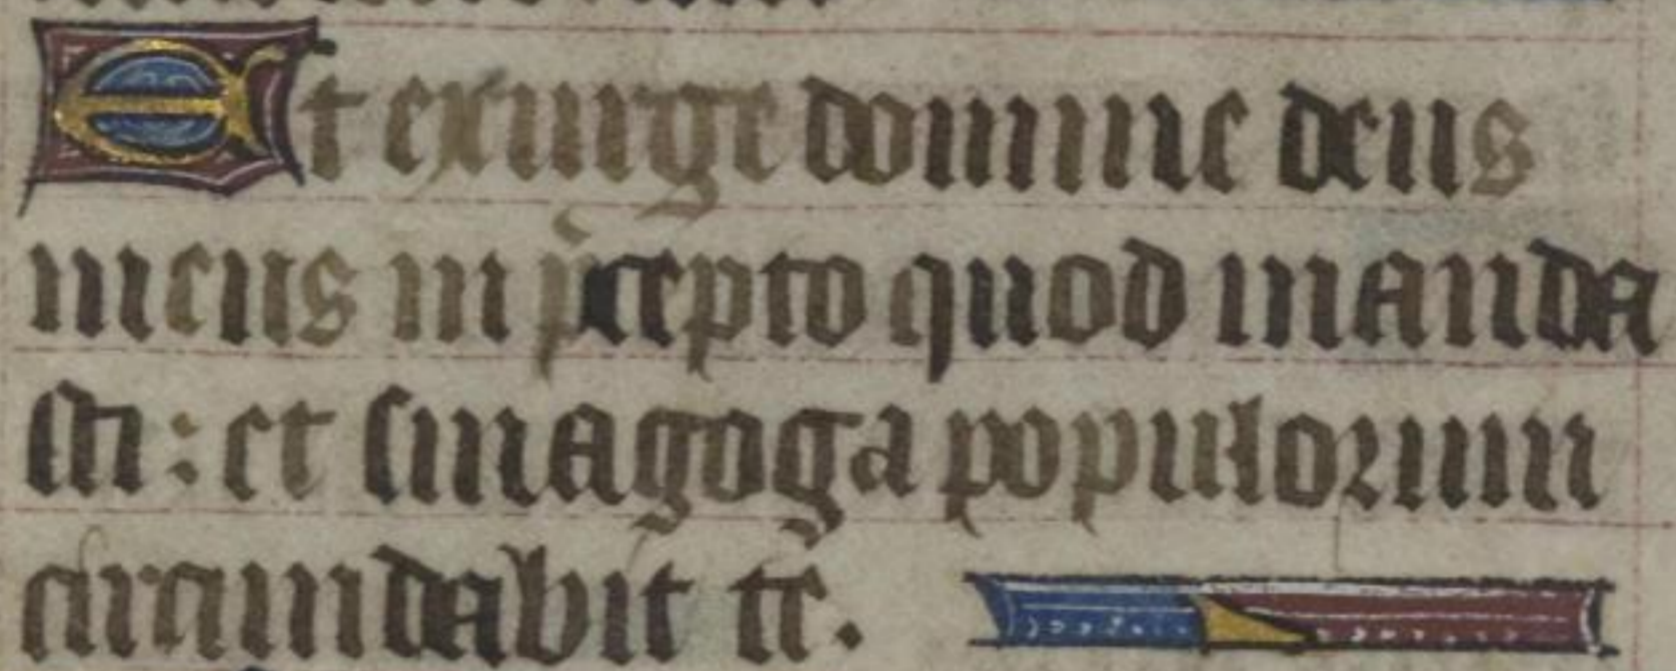 Et exurge domine deus
meus in p̄cepto quod manda
sti : et sinagoga populorum
circundabit te.